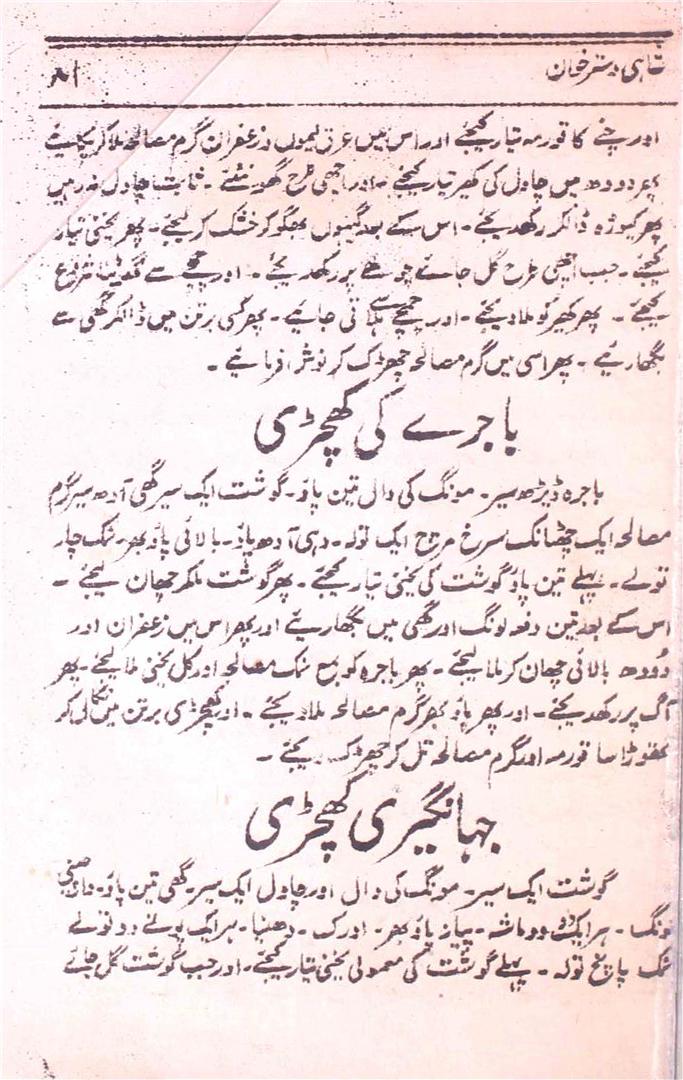 شاہی دسترخوان
۸۱
اور چنے کا قورمہ تیار کیجئے اور اس میں عرق لیموں زعفران گرم مصالحہ ملا کر پکائیے
پھر دودھ میں چاول کی کھیر تیار کیجئے۔ اور اچھی طرح گھونٹئے۔ ثابت چاول نہ رہیں
پھر کیوڑہ ڈالکر رکھدیجئے۔ اس کے بعد گیہوں بھگو کر خشک کر لیجئے۔ پھر یخنی تیار
کیجئے۔ جب اچھی طرح گل جائے چولھے پر رکھدیجئے۔ اور چمچے سے گھوٹنا شروع
کیجئے۔ پھر کھیر کو ملا دیجئے۔ اور چمچے سے ہلاتی جائیے۔ پھر کسی برتن میں ڈالکر گھی سے
بگھاریئے۔ پھر اسی میں گرم مصالحہ چھڑک کر نوش فرمائیے۔
باجرے کی کھچڑی
باجرہ ڈیڑھ سیر۔ مونگ کی دال تین پاؤ۔ گوشت ایک سیر گھی آدھ سیر گرم
مصالحہ ایک چھٹانک سرخ مرچ ایک تولہ۔ دہی آدھ پاؤ۔ بالائی پاؤ بھر۔ نمک چار
تولے۔ پہلے تین پاؤ گوشت کی یخنی تیار کیجئے۔ پھر گوشت ملکر چھان لیجئے۔
اس کے بعد تین دفعہ لونگ اور گھی میں بگھاریئے اور پھر اس میں زعفران اور
دودھ بالائی چھان کر ملا لیجئے۔ پھر باجرہ کو مع نمک مصالحہ اور کل یخنی ملا لیجئے۔ پھر
آگ پر رکھدیجئے۔ اور پھر پاؤ بھر گرم مصالحہ ملا دیجئے۔ اور کھچڑی برتن میں نکال کر
تھوڑا سا قورمہ اور گرم مصالحہ تل کر چھڑک دیجئے۔
جہانگیری کھچڑی
گوشت ایک سیر۔ مونگ کی دال اور چاول ایک سیر۔ گھی تین پاؤ۔ دارچینی
لونگ۔ ہر ایک دو دو ماشہ۔ پیاز پاؤ بھر۔ ادرک۔ دھنیا۔ ہر ایک پونے دو تولے
نمک پانچ تولہ۔ پہلے گوشت کی معمولی یخنی تیار کیجئے۔ اور جب گوشت گل جائے